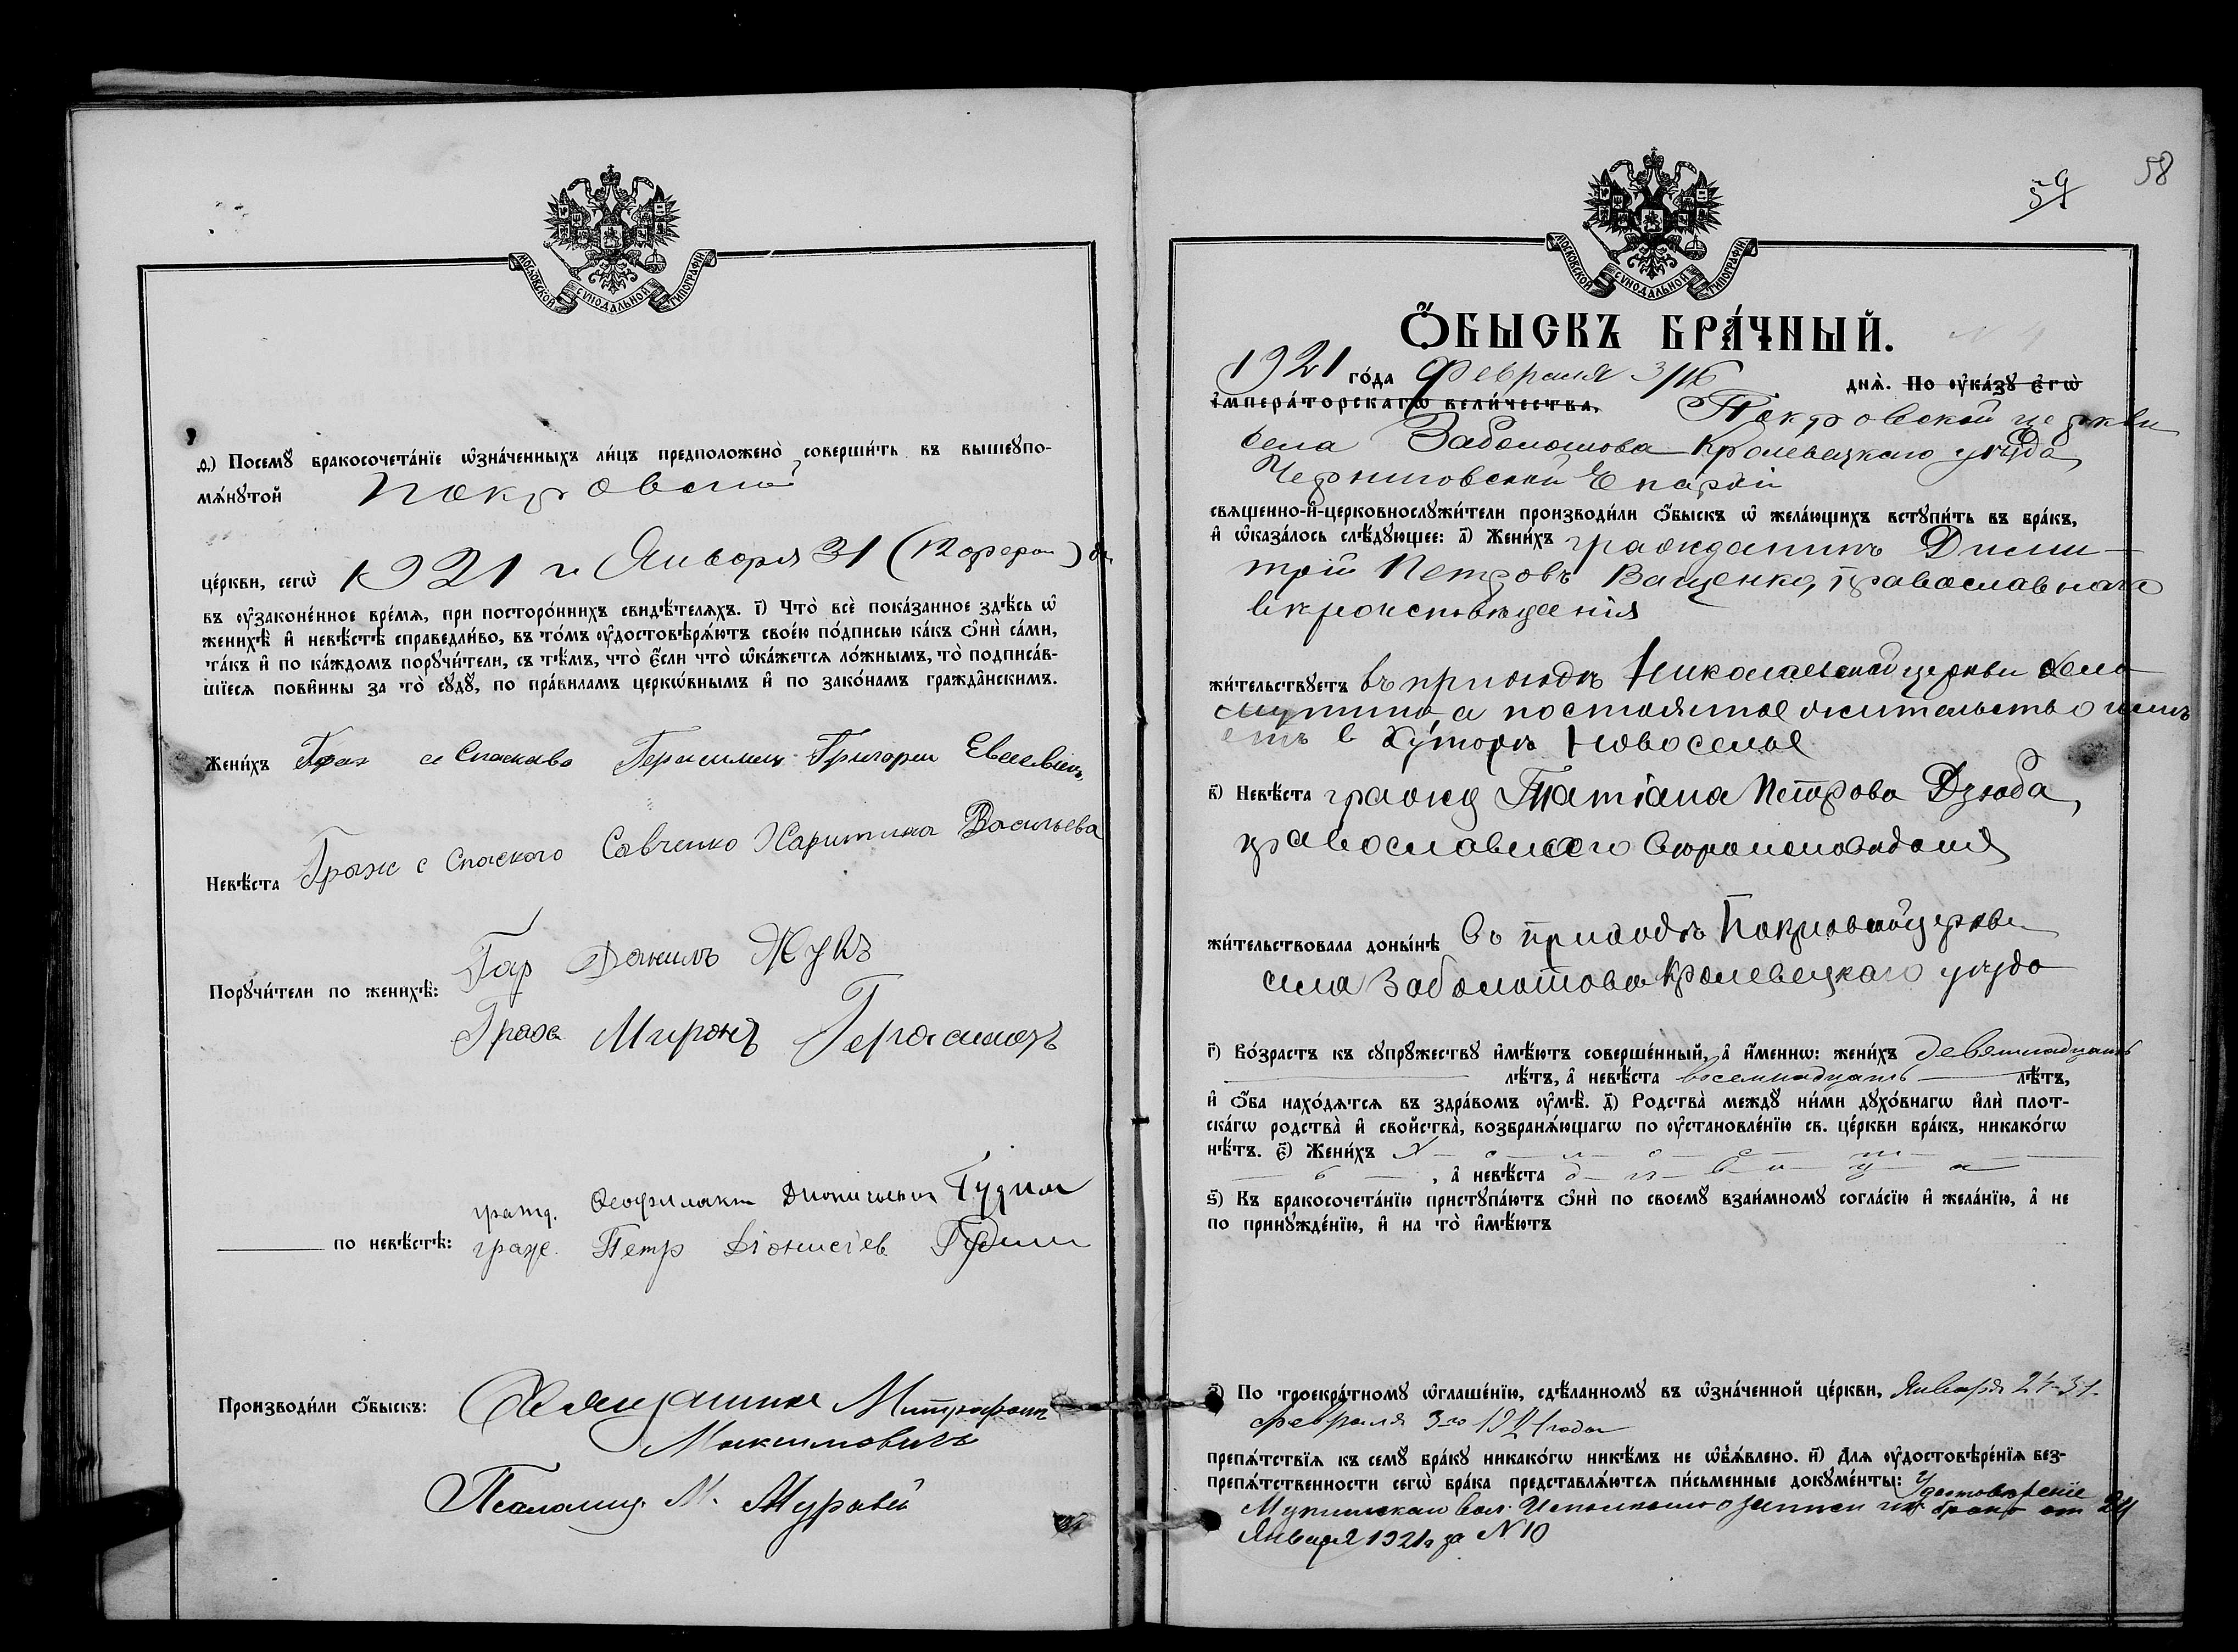 МОСКОВСКОЙ СѴНОДАЛЬНОЙ ТИПОГРАФІИ
ѳ҃.) Посемꙋ̀ бракосочета́нїе ѡ҆зна́ченныхъ ли́цъ предположено̀ соверши́ть въ вышеꙋпо-
мѧ́нꙋтой Покровской
це́ркви, сегѡ̀ 1921 г. Января 31 (12 феврал)
въ ѹ҆законе́нное вре́мѧ, при посторо́ннихъ свидѣ́телѧхъ. і҃) Что̀ всѐ пока́занное здѣ́сь ѡ҆
женихѣ̀ и҆ невѣ́стѣ справедли́во, въ то́мъ ѹ҆достовѣрѧ́ютъ свое́ю по́дписью ка́къ ѻ҆нѝ са́ми,
та́къ и҆ по ка́ждомъ порꙋчи́тели, съ тѣ́мъ, что̀ є҆́сли что̀ ѡ҆ка́жетсѧ ло́жнымъ, то̀ подписа́в-
шїесѧ пови́нны за то̀ сꙋдꙋ̀, по пра́виламъ церко́внымъ и҆ по зако́намъ гражда́нскимъ.
Жени́хъ Граж с Спаскаво Герасимец Григории Евсевич
Невѣ́ста Граж с Спаского Савченко Харитина Васильева
Порꙋчи́тели по женихѣ̀: Гар Данилъ Жукъ
Граж Миронъ Герасимецъ
гражд. Феофилакт Дионисиевич Гудим
по невѣ́стѣ: граж. Петр Діонисіев Гудим
Производи́ли ѻ҆́быскъ: Священник Митрофанъ
Максимовичъ
Псаломщ. М. Муравей
58
59
МОСКОВСКОЙ СѴНОДАЛЬНОЙ ТИПОГРАФІИ
Ѻ҆́БЫСКЪ БРА́ЧНЫЙ.
1921 го́да Февраля 3/16 днѧ̀. По ѹ҆ка́зꙋ є҆гѡ̀
и҆мпера́торскагѡ вели́чества, Покровской церкви
села Заболотова Кролевецкаго уѣзда,
Черниговской Епархіи
свѧщенно-и҆-церковнослꙋжи́тели производи́ли ѻ҆́быскъ ѡ҆ жела́ющихъ встꙋпи́ть въ бра́къ,
и҆ ѡ҆каза́лось слѣ́дꙋющее: а҃) Жени́хъ гражданинъ Дими-
трій Петровъ Ващенко, православнаго
вѣроисповѣданія
жи́тельствꙋетъ въ приходѣ Николаевской церкви села
Мутина, а постоянное жительство имѣ
етъ в Хуторѣ Новоселье
в҃) Невѣ́ста гражд Татіана Петрова Дзюба,
православнаго вѣроисповѣданія
жи́тельствовала доны́нѣ въ приходѣ Покровской церкви
села Заболотова Кролевецкаго уѣзда
г҃) Во́зрастъ къ сꙋпрꙋ́жествꙋ и҆мѣ́ютъ соверше́нный, а҆ и҆́меннѡ: жени́хъ девятнадцать
лѣ́тъ, а҆ невѣ́ста восемнадцать лѣ́тъ,
и҆ ѻ҆́ба нахо́дѧтсѧ въ здра́вомъ ѹ҆мѣ̀. д҃) Родства̀ междꙋ̀ ни́ми дꙋхо́внагѡ и҆лѝ плот-
ска́гѡ родства̀ и҆ свойства̀, возбранѧ́ющагѡ по ѹ҆становле́нїю св. це́ркви бра́къ, никако́гѡ
нѣ́тъ. є҃) Жени́хъ х о л о с т
ъ, а҆ невѣ́ста д ѣ в и ц а
ѕ҃) Къ бракосочета́нїю пристꙋпа́ютъ ѻ҆нѝ по своемꙋ̀ взаи́мномꙋ согла́сїю и҆ жела́нїю, а҆ не
по принꙋжде́нїю, и҆ на то̀ и҆мѣ́ютъ
з҃) По троекра́тномꙋ ѡ҆глаше́нїю, сдѣ́ланномꙋ въ ѡ҆зна́ченной це́ркви, Января 24-31-
февраля 3го 1921 года
препѧ́тствїѧ къ семꙋ̀ бра́кꙋ никако́гѡ никѣ́мъ не ѡ҆б̾ѧ́влено. и҃) Длѧ ѹ҆достовѣре́нїѧ без-
препѧ́тственности сегѡ̀ бра́ка представлѧ́ютсѧ пи́сьменные докꙋме́нты: Удостовѣреніе
Мутинскаи вол. Исполкома о записи их брака от 24
Января 1921 г за N 10